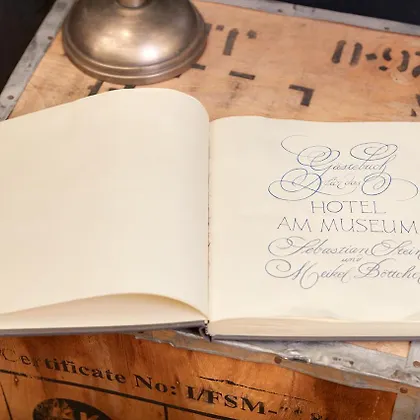 Gästebuch
für das
HOTEL
AM MUSEUM
Sebastian Stein
und
Meikel Böttche
Certificate No: I/FSM-